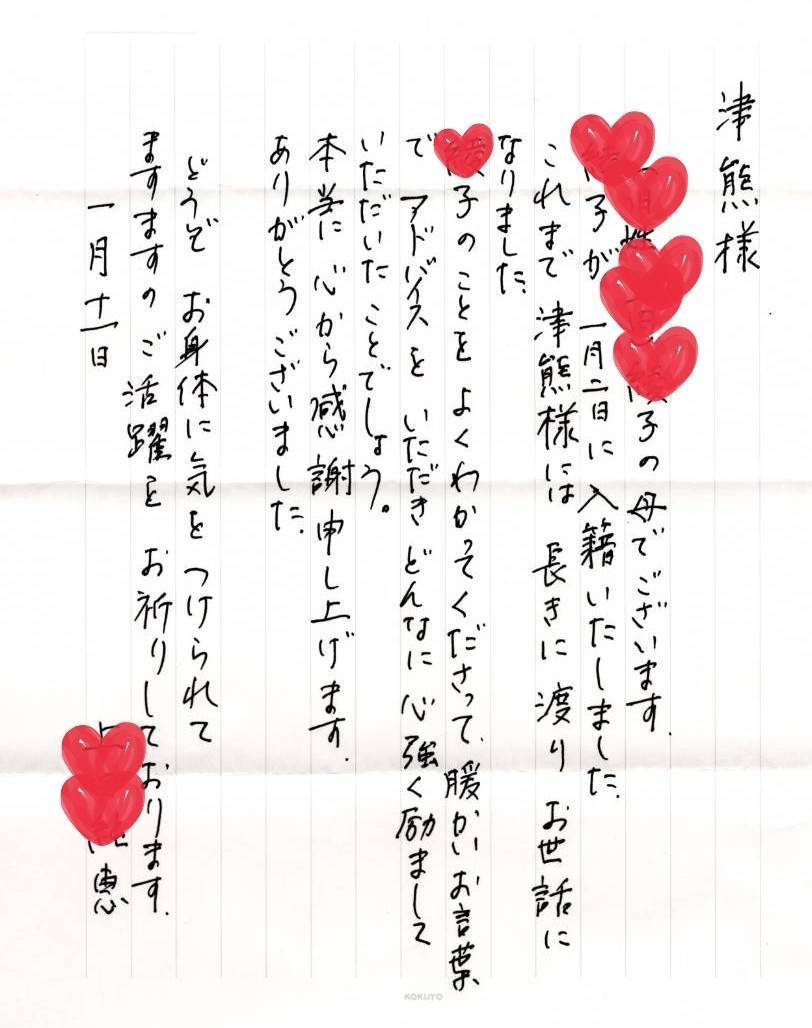 津熊様
子の母でございます.
子が 一月二日に入籍いたしました.
これまで 津熊様には 長きに渡り お世話に
なりました.
子のことを よくわかってくださって、暖かいお言葉
で アドバイスを いただき どんなに 心強く励まして
いただいた ことでしょう。
本当に 心から感謝申し上げます.
ありがとうございました.
どうぞ お身体に気をつけられて
ますますの ご活躍を お祈りしております.
一月十一日
恵
KOKUYO